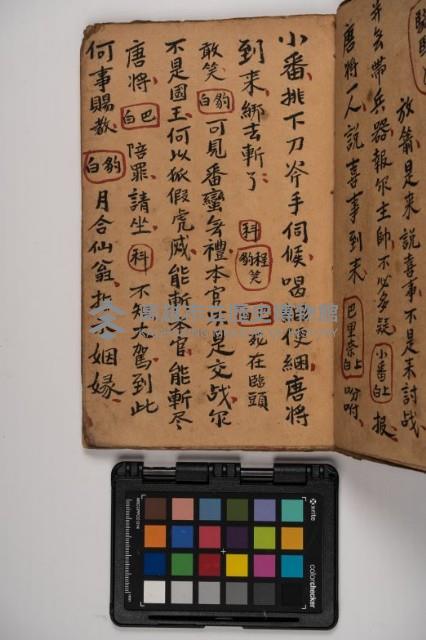 放箭是來說喜事不是來討战
并無帶兵器報尔主帥不必多疑 小番上白 報
唐將一人說喜事到來 巴里奈上白 吩咐
小番排下刀斧手伺候喝便綑唐將
到來綁去斬了 科 程豹笑 死在臨頭
敢笑 豹白 可見番蠻無禮本官是交战尔
不是國王何以狐假虎威能斬本官能斬尽
唐將 巴白 陪罪請坐 科 不知大駕到此
何事賜教 豹白 月合仙翁姻緣
高雄市立歷史博物館
x-rite
colorchecker